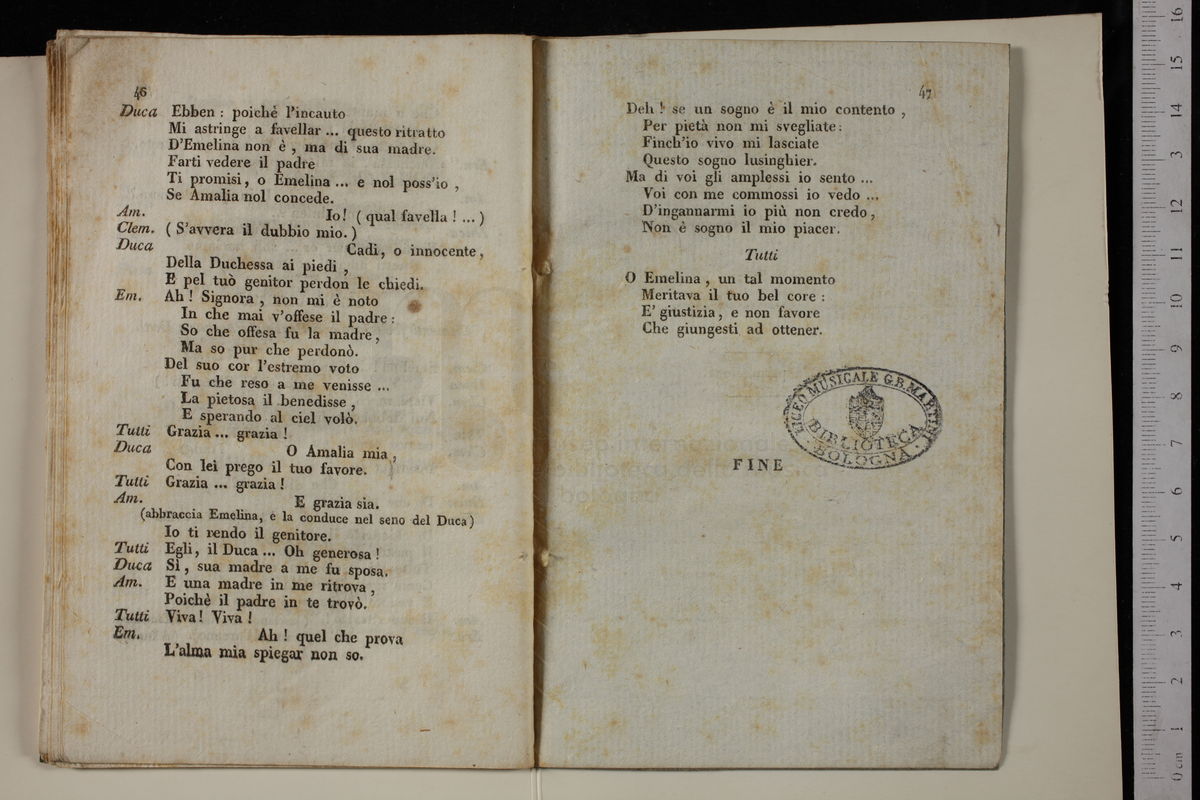 46
Duca Ebben : poichè l'incauto
Mi astringe a favellar ... questo ritratto
D'Emelina non è , ma di sua madre.
Farti vedere il padre
Ti promisi, o Emelina ... e nol poss'io ,
Se Amalia nol concede.
Am. Io! ( qual favella ! ... )
Clem. ( S'avvera il dubbio mio. )
Duca Cadi, o innocente,
Della Duchessa ai piedi ,
E pel tuò genitor perdon le chiedi.
Em. Ah ! Signora , non mi è noto
In che mai v'offese il padre :
So che offesa fu la madre,
Ma so pur che perdonò.
Del suo cor l'estremo voto
Fu che reso a me venisse ...
La pietosa il benedisse ,
E sperando al ciel volò.
Tutti Grazia ... grazia !
Duca O Amalia mia ,
Con lei prego il tuo favore.
Tutti Grazia ... grazia !
Am. E grazia sia.
(abbraccia Emelina, e la conduce nel seno del Duca)
Io ti rendo il genitore.
Tutti Egli, il Duca ... Oh generosa !
Duca Sì, sua madre a me fu sposa.
Am. E una madre in me ritrova ,
Poichè il padre in te trovò.
Tutti Viva! Viva !
Em. Ah ! quel che prova
L'alma mia spiegar non so.
47
Deh ! se un sogno è il mio contento ,
Per pietà non mi svegliate:
Finch'io vivo mi lasciate
Questo sogno lusinghier.
Ma di voi gli amplessi io sento ...
Voi con me commossi io vedo ...
D'ingannarmi io più non credo,
Non è sogno il mio piacer.
Tutti
O Emelina , un tal momento
Meritava il tuo bel core :
E' giustizia, e non favore
Che giungesti ad ottener.
LICEO MUSICALE G.B. MARTINI
BIBLIOTECA
BOLOGNA
FINE
0 cm 1 2 3 4 5 6 7 8 9 10 11 12 13 14 15 16